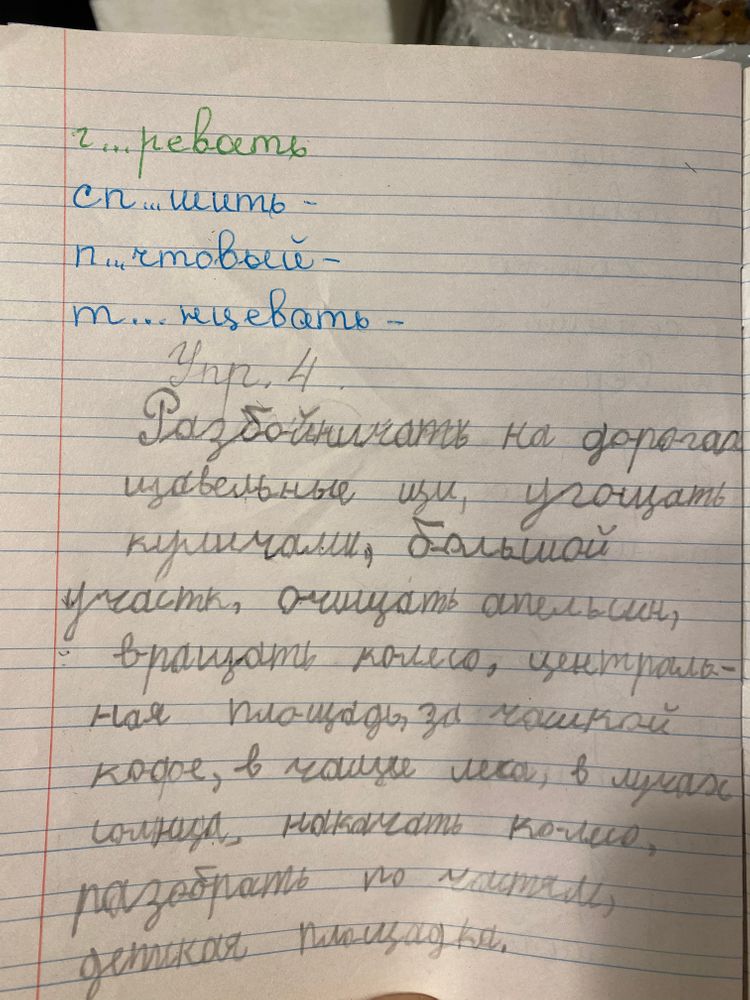 г...ревать
сп...шить -
п...чтовый -
т...нцевать -
Упр. 4.
Разбойничать на дорогах
щавельные щи, угощать
куличами, большой
участк, очищать апельсин,
вращать колесо, централь-
ная площадь, за чашкой
кофе, в чаще леса, в лучах
солнца, накачать колесо,
разобрать по частям,
детская площадка.